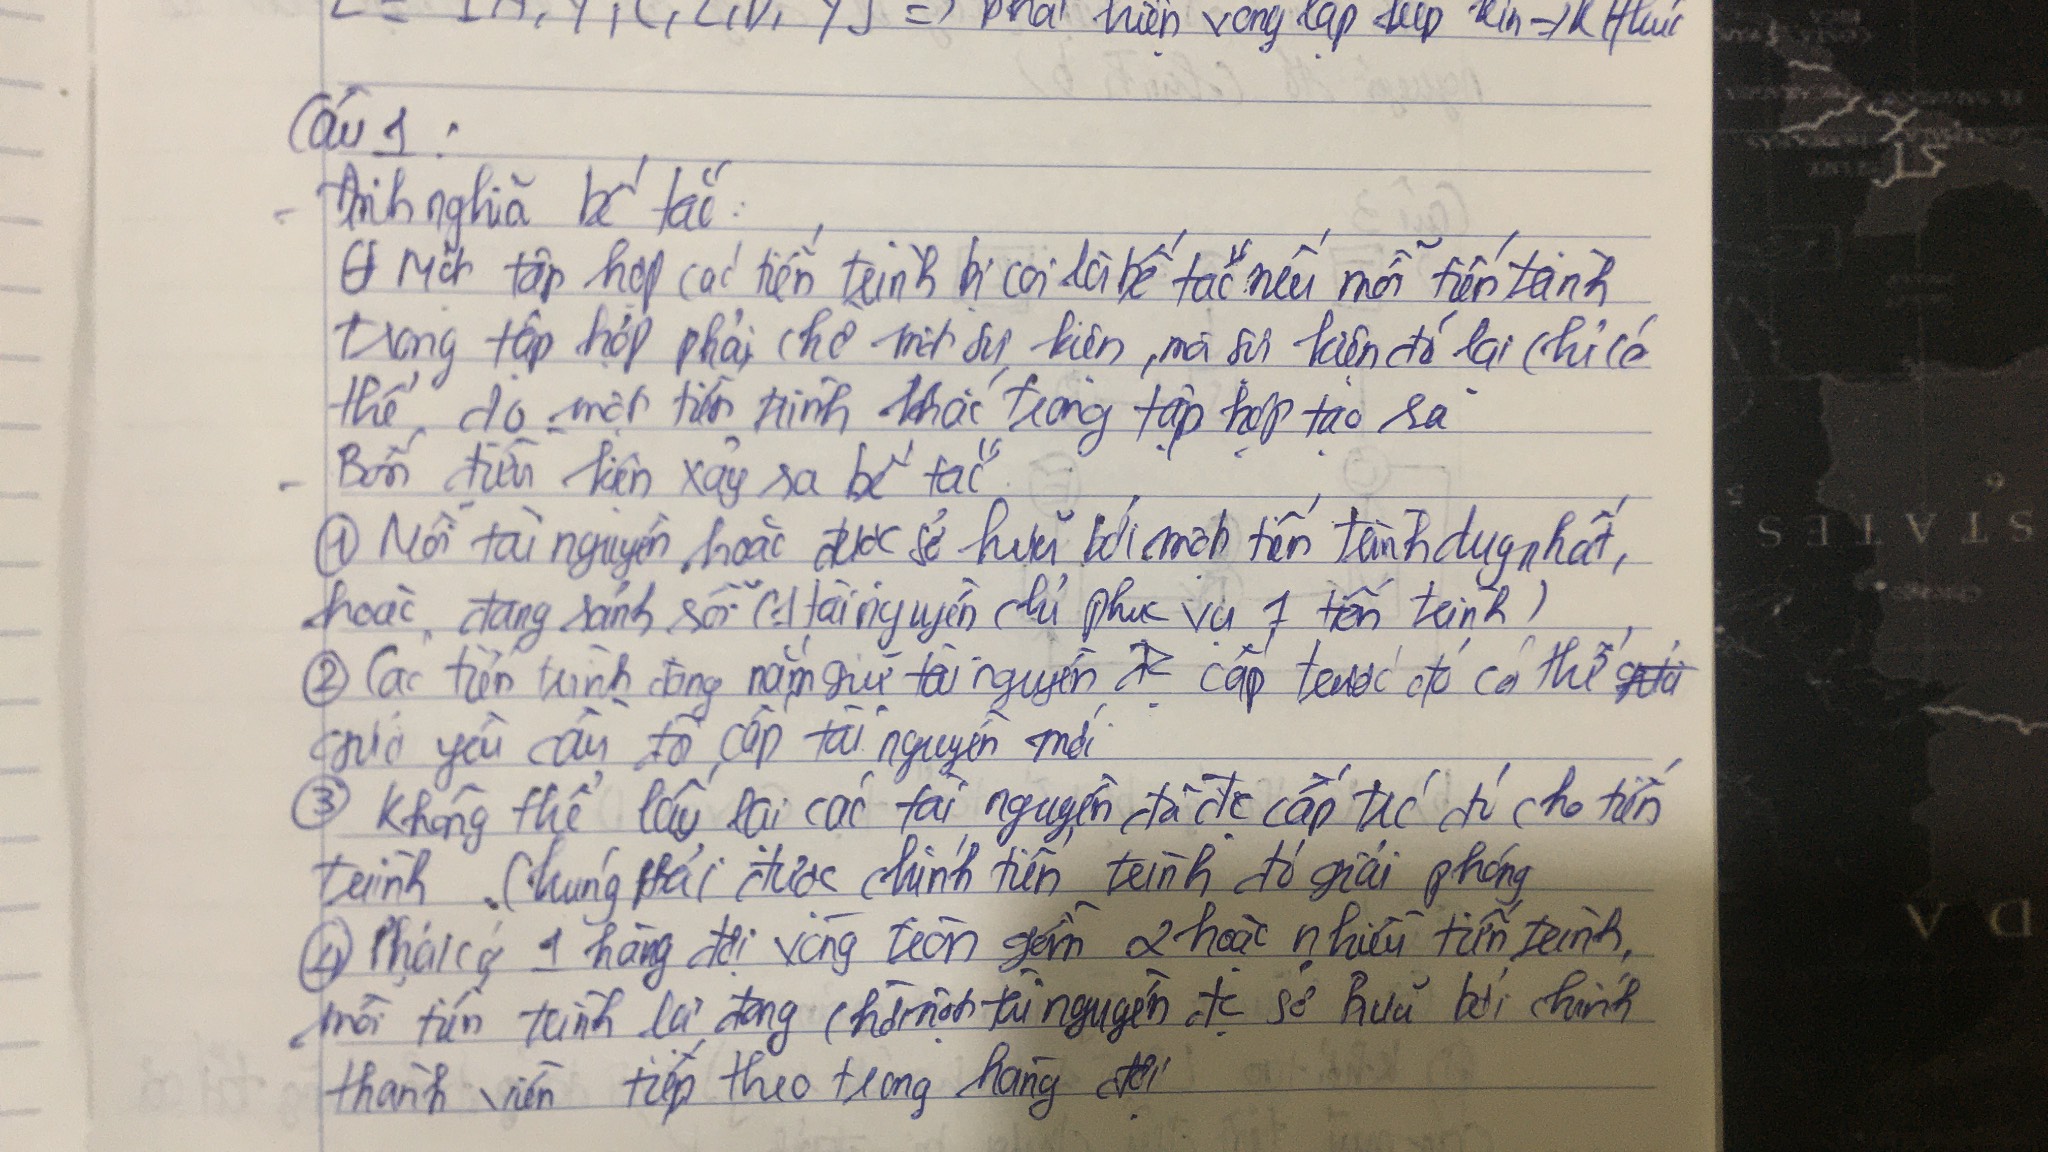 L = [A, Y, C, Z, D, Y] => phát hiện vòng lặp khép kín => k thúc
Câu 1 :
- Định nghĩa bế tắc :
+ Một tập hợp các tiến trình bị coi là bế tắc nếu mỗi tiến trình
trong tập hợp phải chờ một sự kiện, mà sự kiện đó lại chỉ có
thể do một tiến trình khác trong tập hợp tạo ra
- Bốn điều kiện xảy ra bế tắc
① Mỗi tài nguyên hoặc được sở hữu bởi một tiến trình duy nhất,
hoặc đang sẵn sàng (1 tài nguyên chỉ phục vụ 1 tiến trình)
② Các tiến trình đang nắm giữ tài nguyên đc cấp trước đó có thể
gửi yêu cầu để cấp tài nguyên mới
③ Không thể lấy lại các tài nguyên đã đc cấp trc đó cho tiến
trình. Chúng phải được chính tiến trình đó giải phóng
④ Phải có 1 hàng đợi vòng tròn gồm 2 hoặc nhiều tiến trình,
mỗi tiến trình lại đang chờ một tài nguyên đc sở hữu bởi chính
thành viên tiếp theo trong hàng đợi
STATES